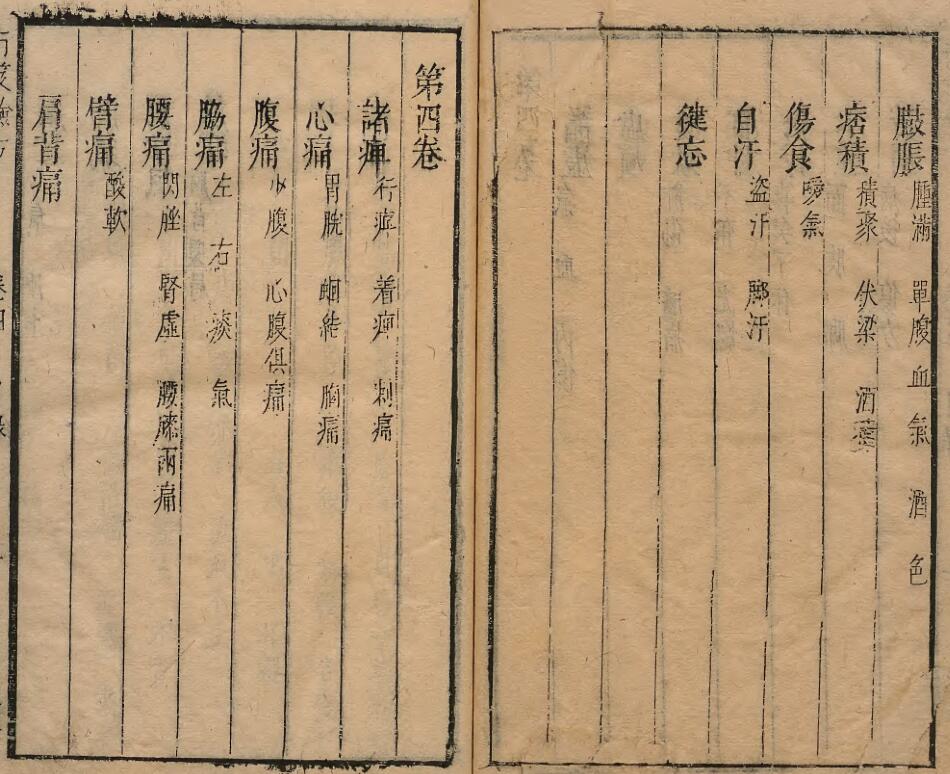 臌脹 腫滿 單腹 血 氣 酒 色
痞積 積聚 伏梁 酒
傷食 噯氣
自汗 盗汗 腳汗
徤忘
第四卷
諸痺 行痹 着痺 刺痛
心痛 胃脘 蛔結 胸痛
腹痛 小腹 心腹俱痛
脇痛 左 右 痰 氣
腰痛 閃挫 腎虛 腰膝兩痛
臂痛 酸軟
肩背痛
卷四